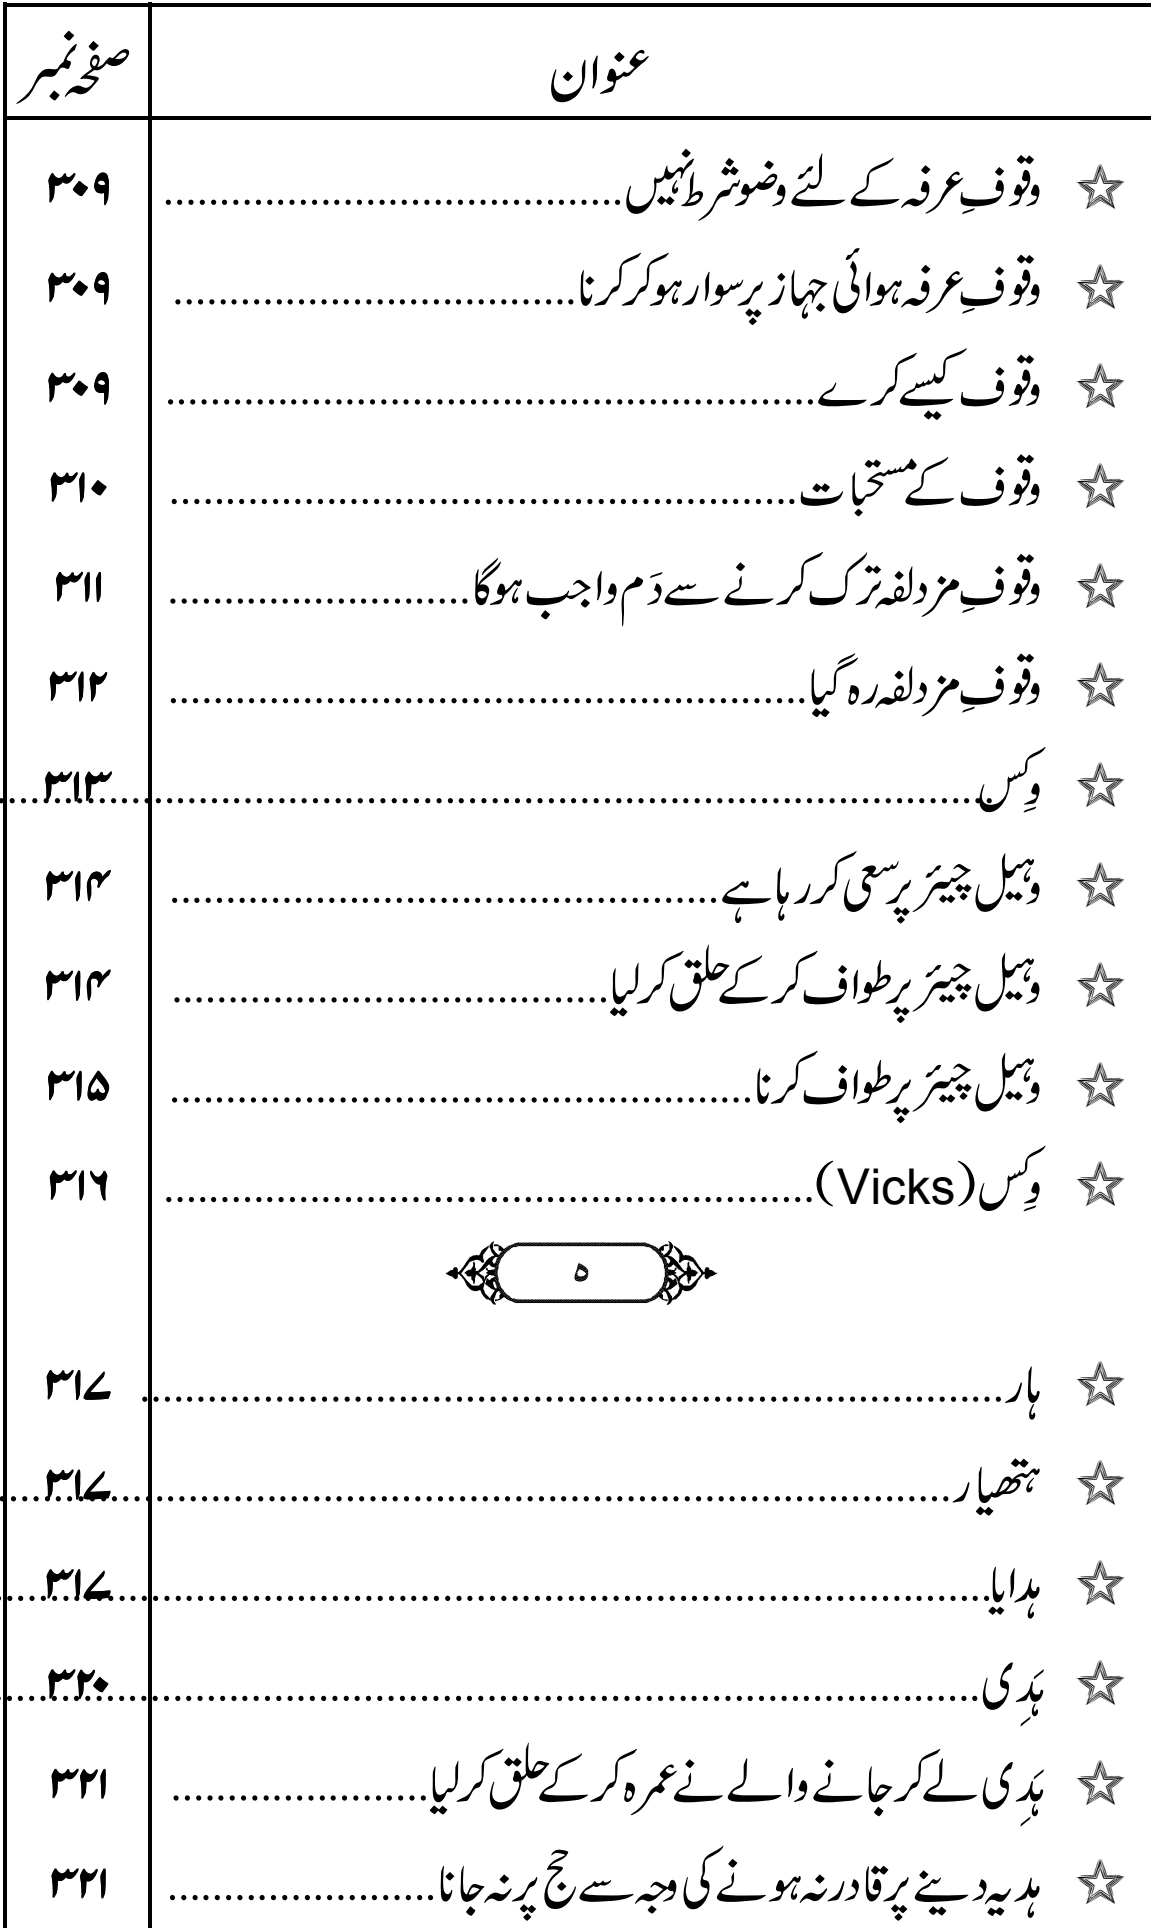 عنوان صفحہ نمبر
☆ وقوفِ عرفہ کے لئے وضو شرط نہیں ........ ۳۰۹
☆ وقوفِ عرفہ ہوائی جہاز پر سوار ہوکر کرنا ........ ۳۰۹
☆ وقوف کیسے کرے ........ ۳۰۹
☆ وقوف کے مستحبات ........ ۳۱۰
☆ وقوفِ مزدلفہ ترک کرنے سے دَم واجب ہوگا ........ ۳۱۱
☆ وقوفِ مزدلفہ رہ گیا ........ ۳۱۲
☆ وِکس ........ ۳۱۳
☆ وہیل چیئر پر سعی کررہا ہے ........ ۳۱۴
☆ وہیل چیئر پر طواف کرکے حلق کرلیا ........ ۳۱۴
☆ وہیل چیئر پر طواف کرنا ........ ۳۱۵
☆ وِکس (Vicks) ........ ۳۱۶
ہ
☆ ہار ........ ۳۱۷
☆ ہتھیار ........ ۳۱۷
☆ ہدایا ........ ۳۱۷
☆ ہَدِی ........ ۳۲۰
☆ ہَدِی لے کر جانے والے نے عمرہ کرکے حلق کرلیا ........ ۳۲۱
☆ ہدیہ دینے پر قادر نہ ہونے کی وجہ سے حج پر نہ جانا ........ ۳۲۱